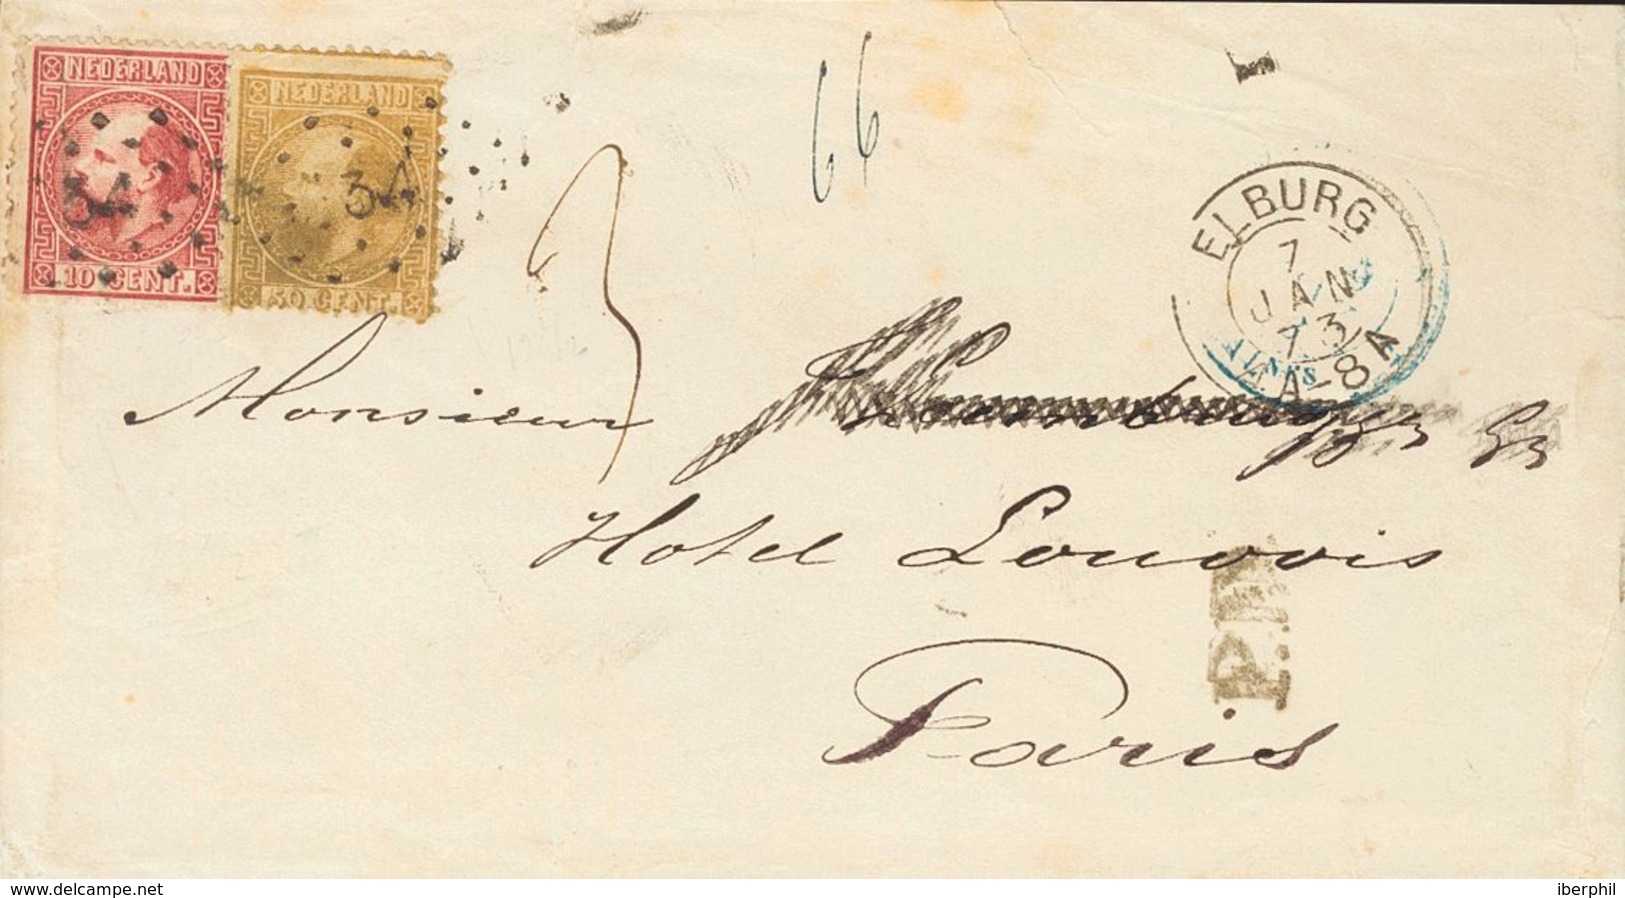 NEDERLAND
10 CENT.
34
NEDERLAND
50 CENT.
34
3
66
ELBURG
7
JAN
73
8A
Monsieur
Hotel Louvois
Paris
P.D.
www.delcampe.net
iberphil